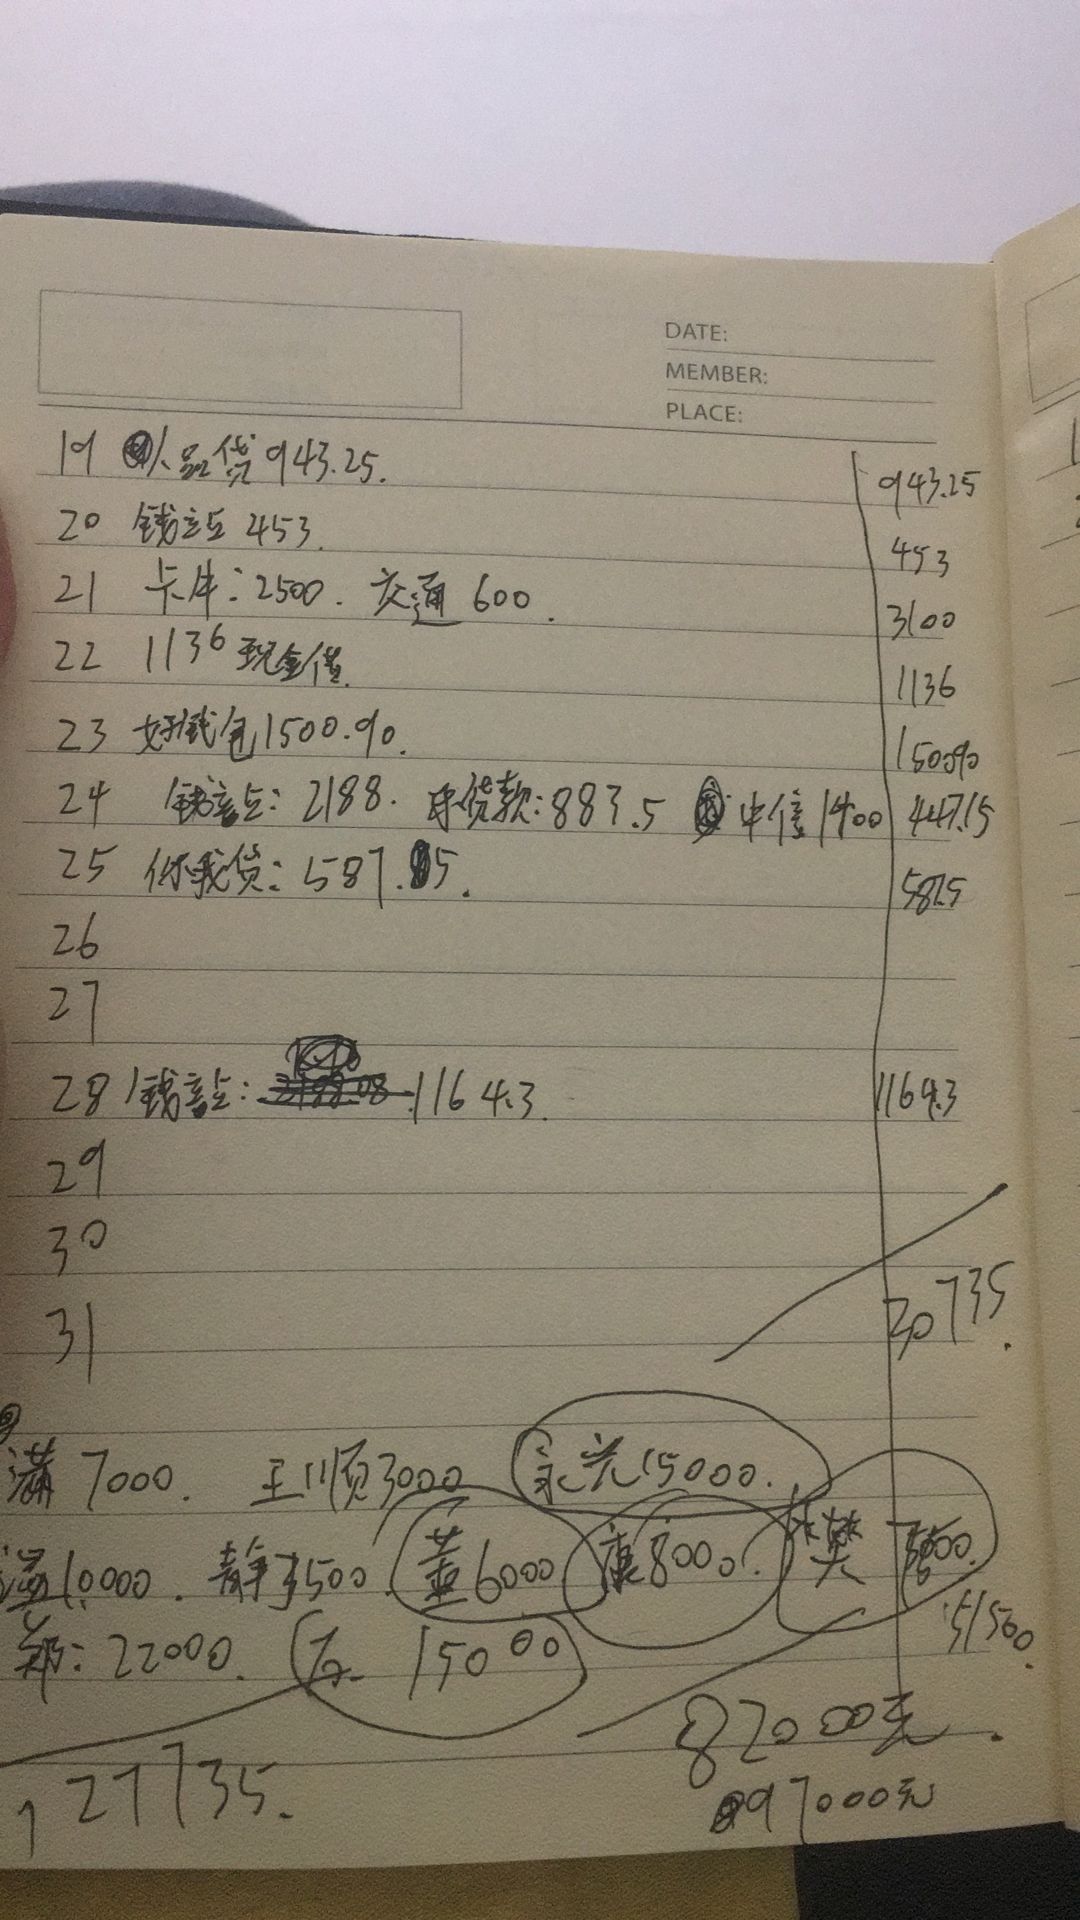 DATE:
MEMBER:
PLACE:
19 人品贷 943.25. 943.25
20 钱站 453. 453
21 卡牛:2500. 交通 600. 3100
22 1136 现金借. 1136
23 好钱包 1500.90. 1500.90
24 钱站: 2188. 贷款:883.5 中信 1400 4471.5
25 你我贷: 587.5. 587.5
26
27
28 钱站: 1164.3. 1164.3
29
30
31
20735.
满 7000. 王川顺 3000 永光 15000.
溢 10000. 静 3500. 董 6000 康 8000. 樊 7500.
51500.
郑: 22000. 石 15000
82000元.
127735.
97000元